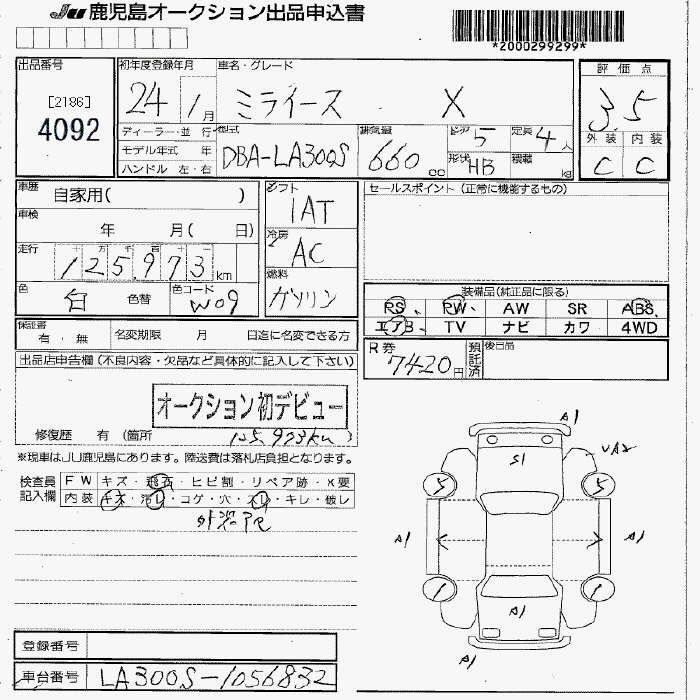 JU 鹿児島オークション出品申込書
*2000299299*
出品番号
[2186]
4092
初年度登録年月
24年 1月
車名・グレード
ミライース X
評価点
3.5
外装 内装
C C
ディーラー・並行
モデル年式 年
ハンドル 左・右
型式
DBA-LA300S
排気量
660cc
ドア
5
定員
4人
形状
HB
積載
kg
車歴
自家用( )
車検
年 月( 日)
走行
十 万 千 百 十 一
125,973km
色
白
色替
色コード
W09
シフト
IAT
冷房
AC
燃料
ガソリン
セールスポイント(正常に機能するもの)
装備品(純正品に限る)
PS、 PW、 AW SR ABS、
エアB、 TV ナビ カワ 4WD
保証書
有・無
名変期限 月 日迄に名変できる方
R券
7420円
預託済
後日品
出品店申告欄(不良内容・欠品など具体的に記入して下さい)
オークション初デビュー
修復歴 有(箇所 125,973km )
※現車はJU鹿児島にあります。陸送費は落札店負担となります。
検査員記入欄
FW キズ・飛石・ヒビ割・リペア跡・X要
内装 キズ・汚レ・コゲ・穴・スレ・キレ・破レ
A1
S1
UA2
5 5
A1 A1
1 1
A1
A1
登録番号
車台番号
LA300S-1056832